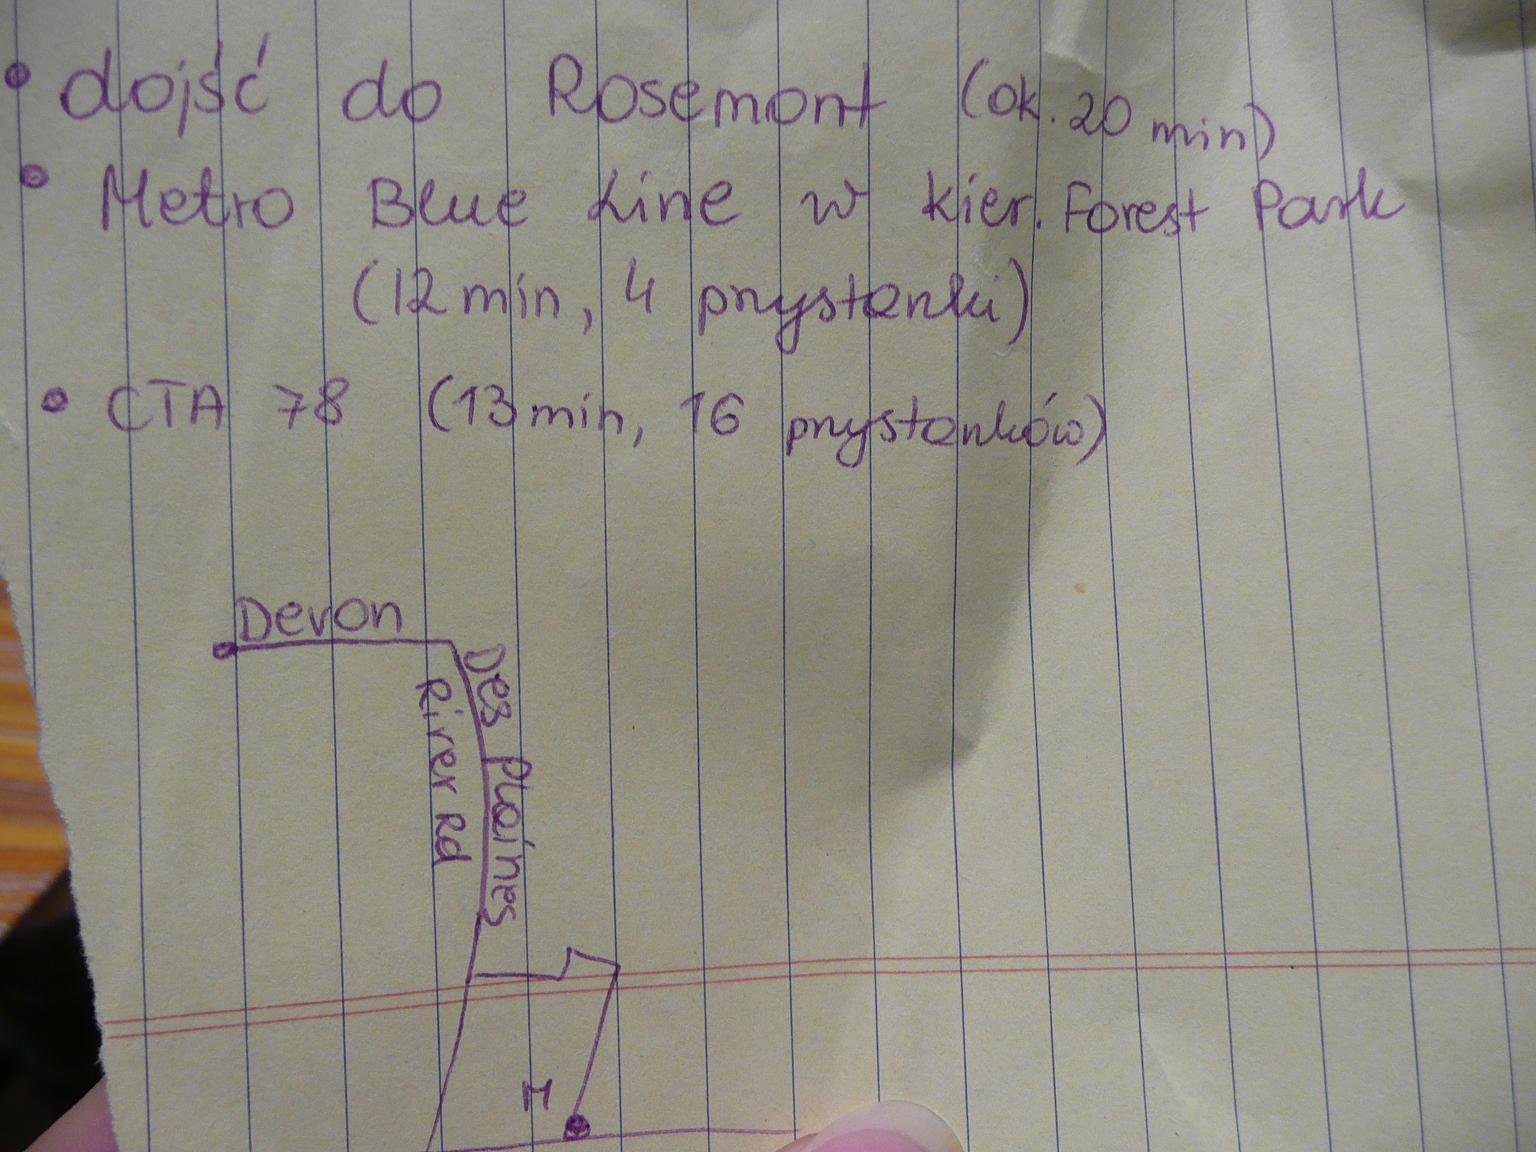 • dojść do Rosemont (ok. 20 min)
• Metro Blue Line w kier. Forest Park
(12 min, 4 przystanki)
• CTA 78 (13 min, 16 przystanków)
Devon
Des Plaines
River Rd
M